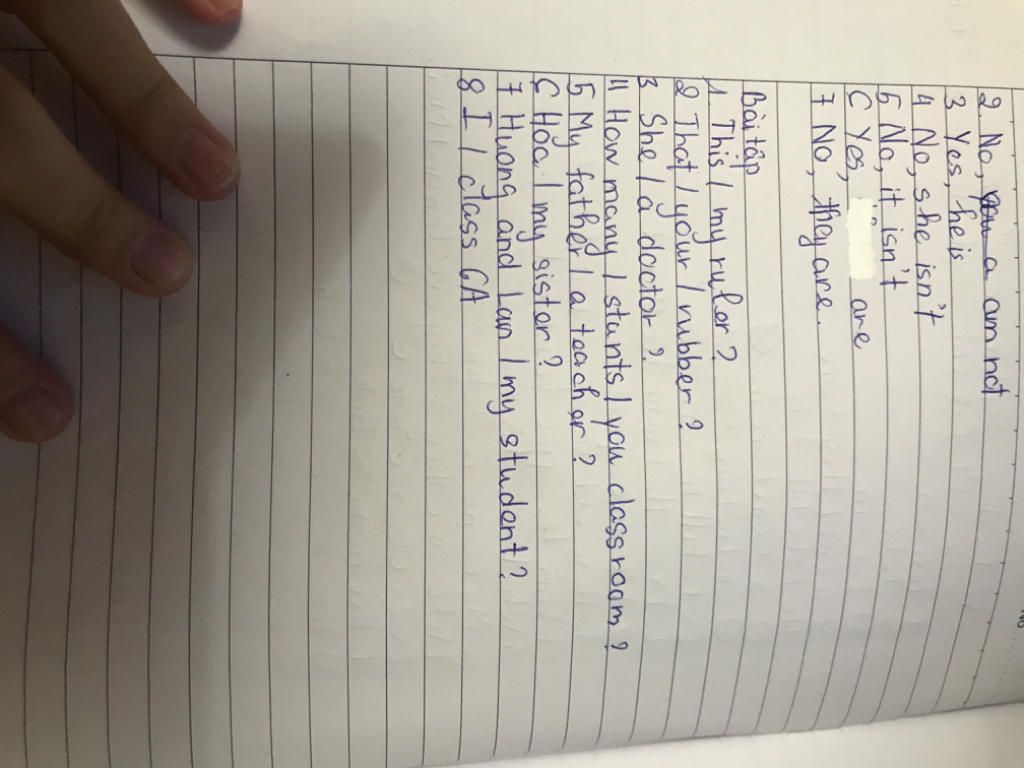 2. No, a am not
3 Yes, he is
4 No, she isn't
5 No, it isn't
6 Yes, are
7 No, they are.
Bài tập
1. This / my ruler?
2 That / your / rubber?
3 She / a doctor?
4 How many / stunts / you classroom?
5 My father / a teacher?
6 Hoa / my sister?
7 Huong and Lan / my student?
8 I / class 6A